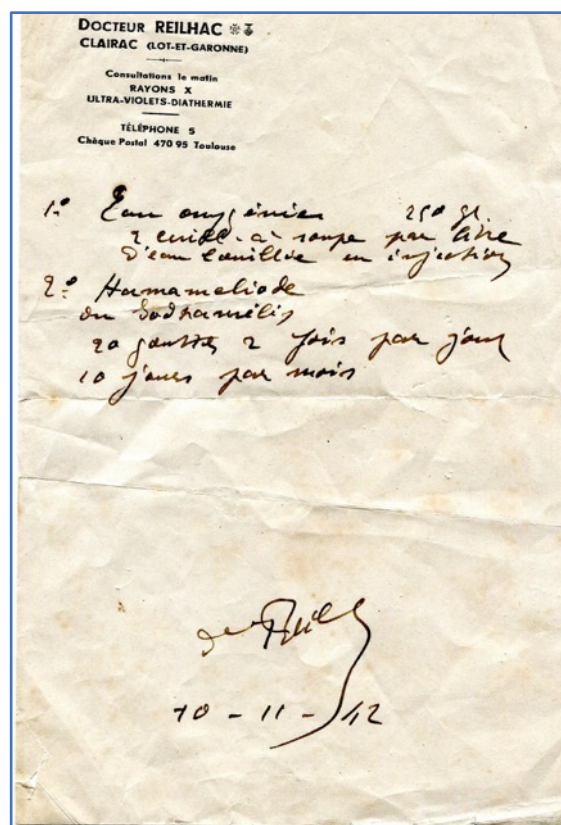 DOCTEUR REILHAC
CLAIRAC (LOT-ET-GARONNE)
Consultations le matin
RAYONS X
ULTRA-VIOLETS-DIATHERMIE
TÉLÉPHONE 5
Chèque Postal 470 95 Toulouse
1° Eau oxygénée 250 gr
2 cuill. à soupe par litre
d'eau bouillie en injection
2° Hamameliode
ou Iodhamélis
20 gouttes 2 fois par jour
10 jours par mois
10 - 11 - 42